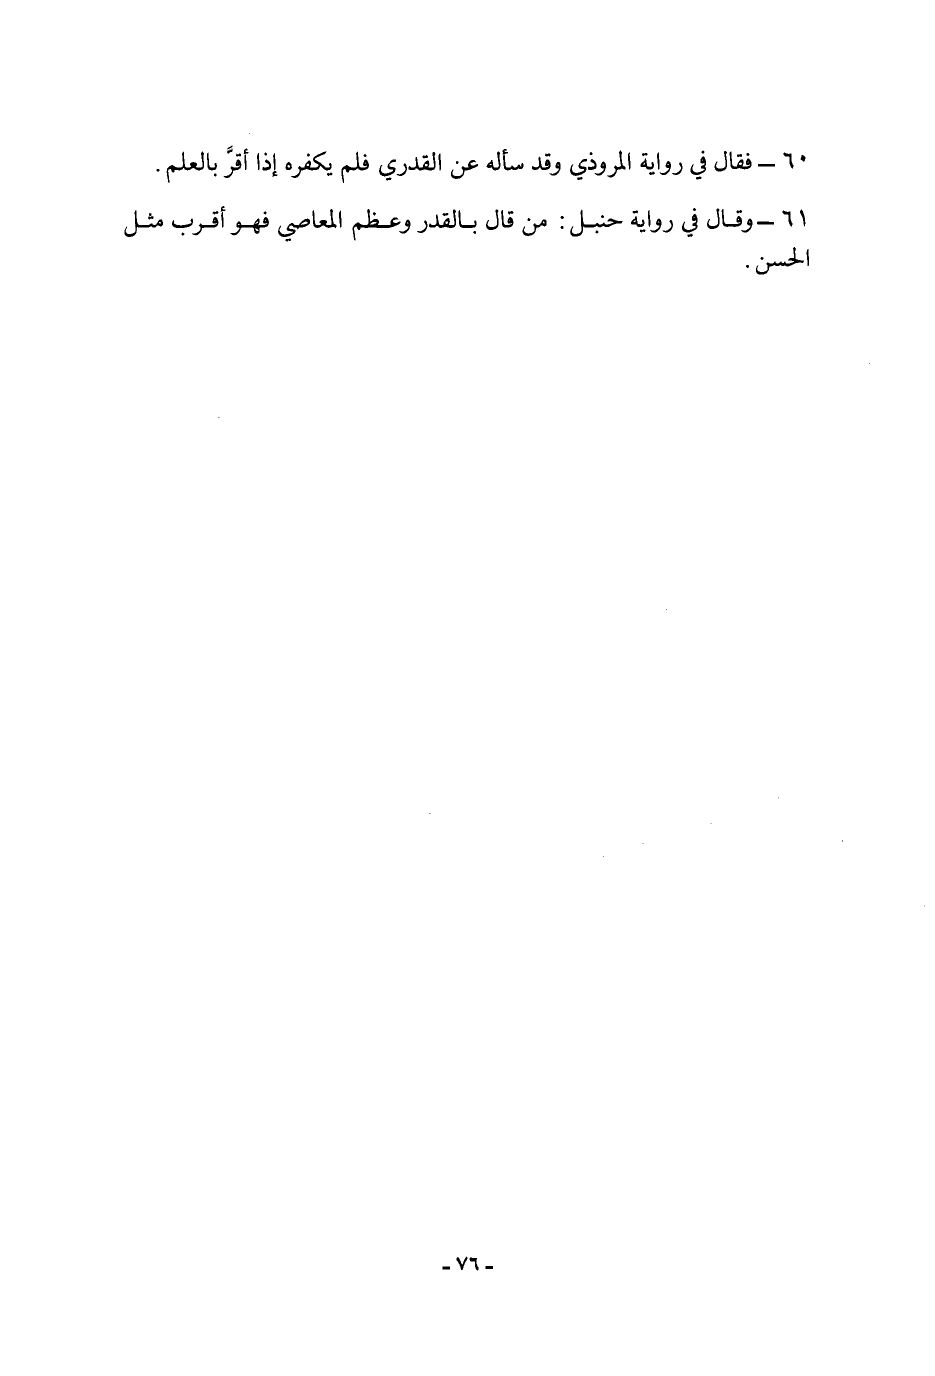 ٦٠ ــ فقال في رواية المروذي وقد سأله عن القدري فلم يكفره إذا أقرَّ بالعلم .
٦١ ــ وقال في رواية حنبل : من قال بالقدر وعظم المعاصي فهو أقرب مثل
الحسن .
- ٧٦ -